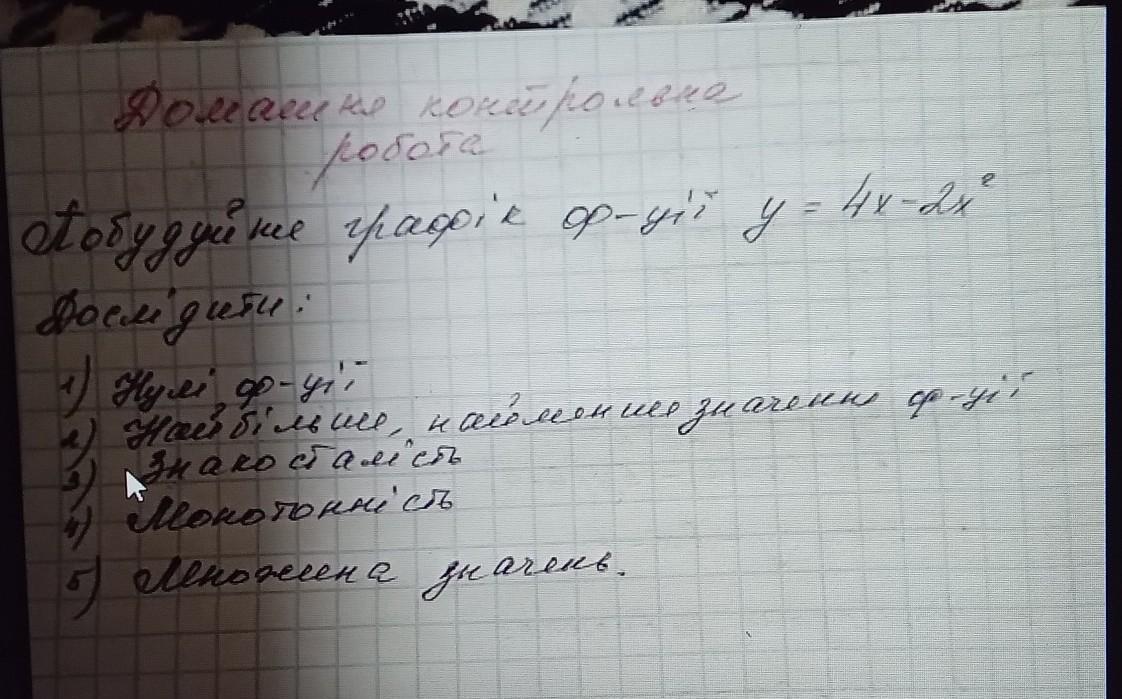 Домашня контрольна
робота
Побудуйте графік ф-ції y = 4x-2x²
Дослідити:
1) Нулі ф-ції
2) Найбільше, найменше значення ф-ції
3) Знакосталість
4) Монотонність
5) Множина значень.